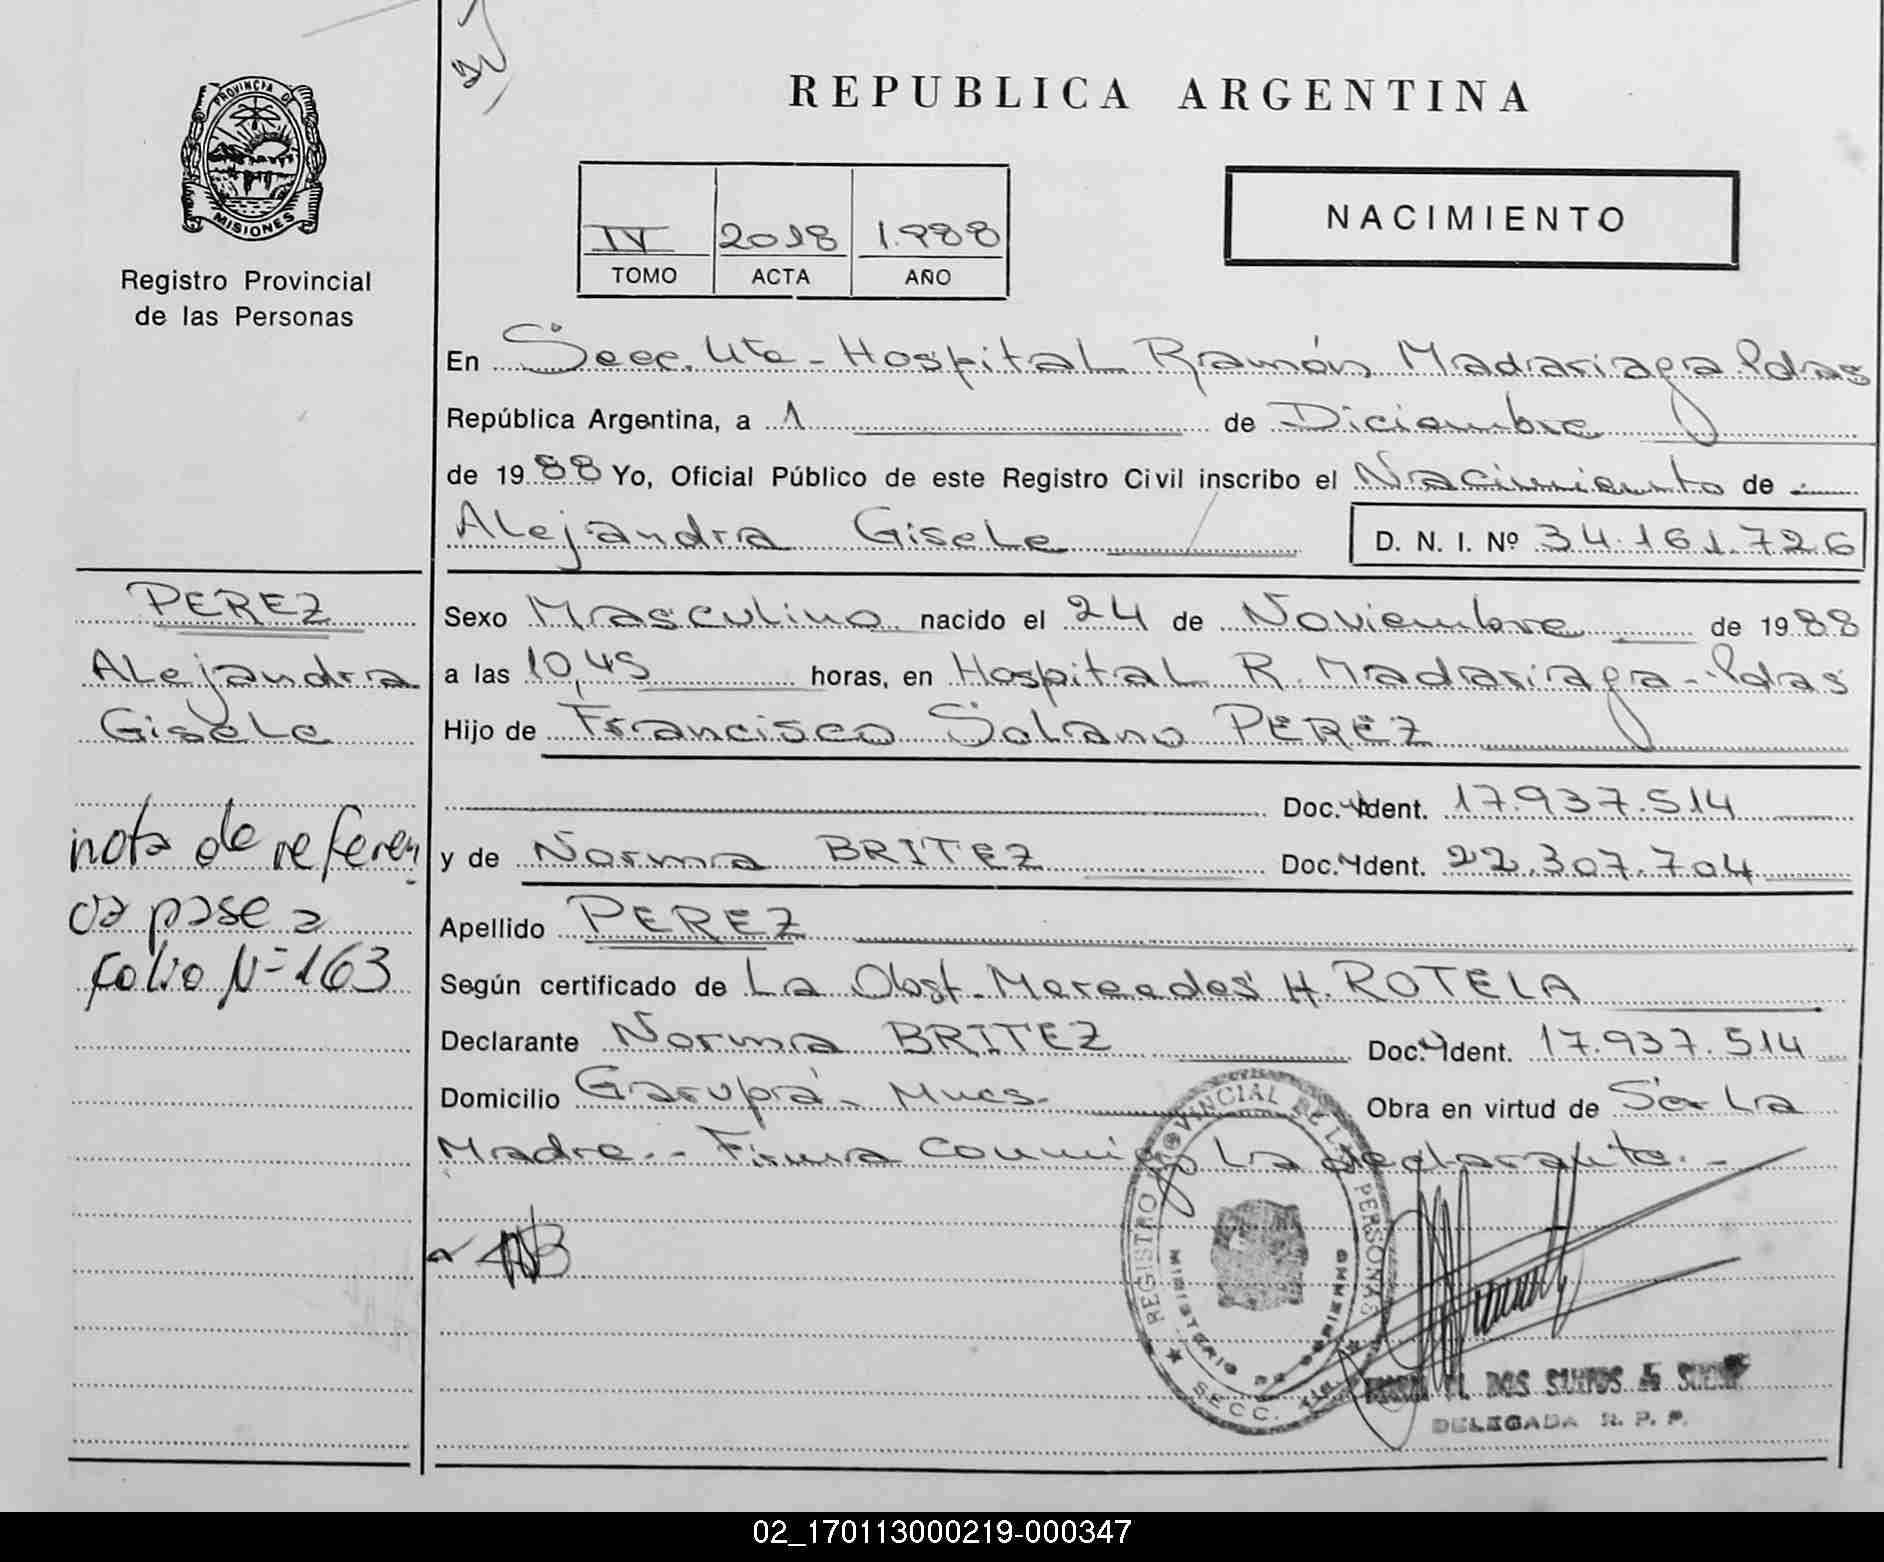 REPUBLICA ARGENTINA
PROVINCIA DE
MISIONES
Registro Provincial
de las Personas
IV 2018 1.988
TOMO ACTA AÑO
NACIMIENTO
En Secc. 4ta - Hospital Ramón Madariaga Pdas
República Argentina, a 1 de Diciembre
de 1988 Yo, Oficial Público de este Registro Civil inscribo el Nacimiento de
Alejandra Gisele D. N. I. Nº 34.161.726
PEREZ
Alejandra
Gisele
nota de referen
cia pase a
folio Nº 163
Sexo Masculino nacido el 24 de Noviembre de 1988
a las 10,45 horas, en Hospital R. Madariaga - Pdas
Hijo de Francisco Solano PEREZ
Doc. Ident. 17.937.514
y de Norma BRITEZ Doc. Ident. 22.307.704
Apellido PEREZ
Según certificado de La Obst. Mercedes H. ROTELA
Declarante Norma BRITEZ Doc. Ident. 17.937.514
Domicilio Garupá - Mnes. Obra en virtud de Ser La
Madre.- Firma Conmigo La declarante.-
REGISTRO PROVINCIAL DE LAS PERSONAS
MINISTERIO DE GOBIERNO
SECC.
DOS SANTOS
DELEGADA R. P. P.
02_170113000219-000347